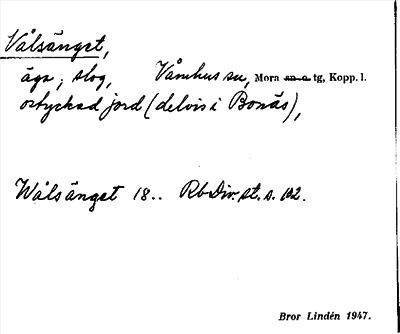 Vålsänget,
äga; slog, Våmhus sn, Mora sn o. tg, Kopp. l.
ostyckad jord (delvis i Bonäs),
Wålsänget 18.. Rb Div. st. s. 102.
Bror Lindén 1947.